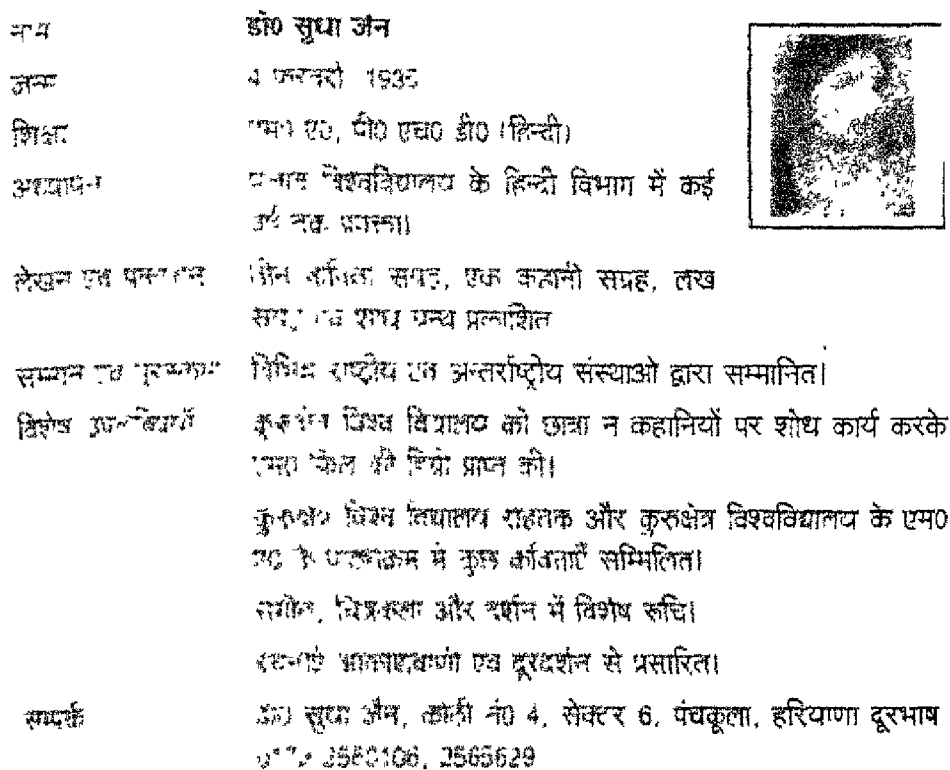 नाम डॉ0 सुधा जैन
जन्म 4 फरवरी 1935
शिक्षा एम0 ए0, पी0 एच0 डी0 (हिन्दी)
अध्यापन विश्वविद्यालय के हिन्दी विभाग में कई
वर्ष तक प्रवक्ता।
लेखन एवं प्रकाशन तीन कविता संग्रह, एक कहानी संग्रह, लेख
संग्रह एवं शोध ग्रन्थ प्रकाशित
सम्मान एवं पुरस्कार विभिन्न राष्ट्रीय एवं अन्तर्राष्ट्रीय संस्थाओ द्वारा सम्मानित।
विशेष उपलब्धियाँ कुरुक्षेत्र विश्व विद्यालय की छात्रा न कहानियों पर शोध कार्य करके
एम0 फिल की डिग्री प्राप्त की।
कुरुक्षेत्र विश्व विद्यालय रोहतक और कुरुक्षेत्र विश्वविद्यालय के एम0
ए0 के पाठ्यक्रम में कुछ कविताएँ सम्मिलित।
संगीत, चित्रकला और दर्शन में विशेष रूचि।
रचनाएं आकाशवाणी एव दूरदर्शन से प्रसारित।
सम्पर्क डॉ0 सुधा जैन, कोठी नं0 4, सेक्टर 6, पंचकूला, हरियाणा दूरभाष
2565629